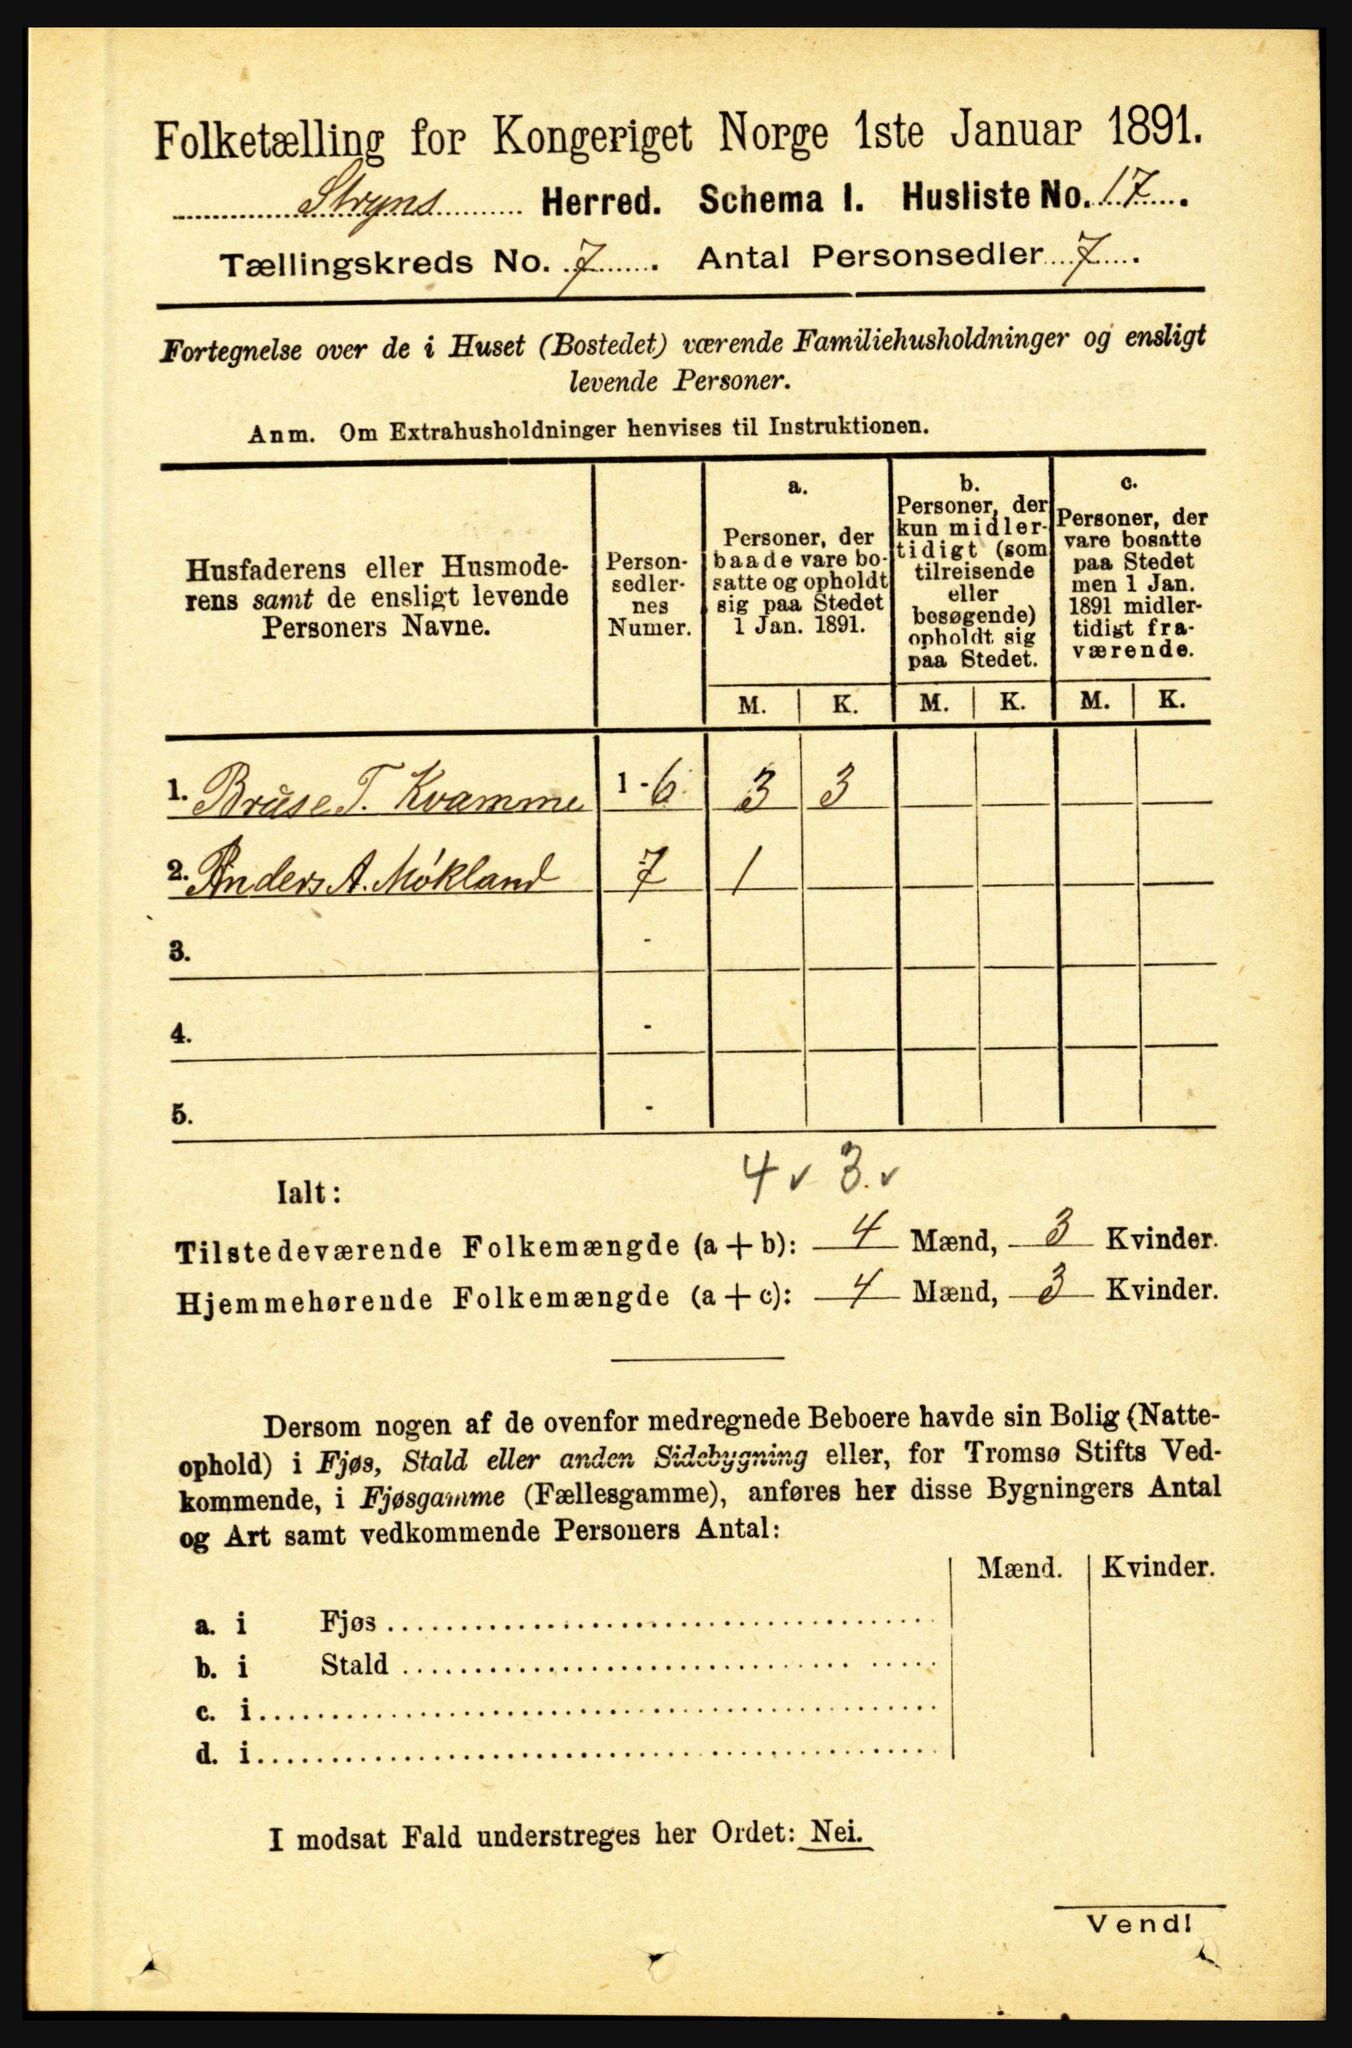 Folketælling for Kongeriget Norge 1ste Januar 1891.
Stryns Herred. Schema 1. Husliste No. 17.
Tællingskreds No. 7. Antal Personsedler 7.
Fortegnelse over de i Huset (Bostedet) værende Familiehusholdninger og ensligt
levende Personer.
Anm. Om Extrahusholdninger henvises til Instruktionen.
Husfaderens eller Husmode-
rens samt de ensligt levende
Personers Navne.
Person-
sedler-
nes
Numer.
a.
Personer, der
baade vare bo-
satte og opholdt
sig paa Stedet
1 Jan. 1891.
b.
Personer, der
kun midler-
tidigt (som
tilreisende
eller
besøgende)
opholdt sig
paa Stedet.
c.
Personer, der
vare bosatte
paa Stedet
men 1 Jan.
1891 midler-
tidigt fra-
værende.
M. K. M. K. M. K.
1. Bruse T. Kvamme 1 - 6 3 3
2. Anders A. Møkland 7 1
3. -
4. -
5. -
4 v 3. v
Ialt:
Tilstedeværende Folkemængde (a + b): 4 Mænd, 3 Kvinder.
Hjemmehørende Folkemængde (a + c): 4 Mænd, 3 Kvinder.
Dersom nogen af de ovenfor medregnede Beboere havde sin Bolig (Natte-
ophold) i Fjøs, Stald eller anden Sidebygning eller, for Tromsø Stifts Ved-
kommende, i Fjøsgamme (Fællesgamme), anføres her disse Bygningers Antal
og Art samt vedkommende Personers Antal:
Mænd. Kvinder.
a. i Fjøs
b. i Stald
c. i
d. i
I modsat Fald understreges her Ordet: Nei.
Vend!